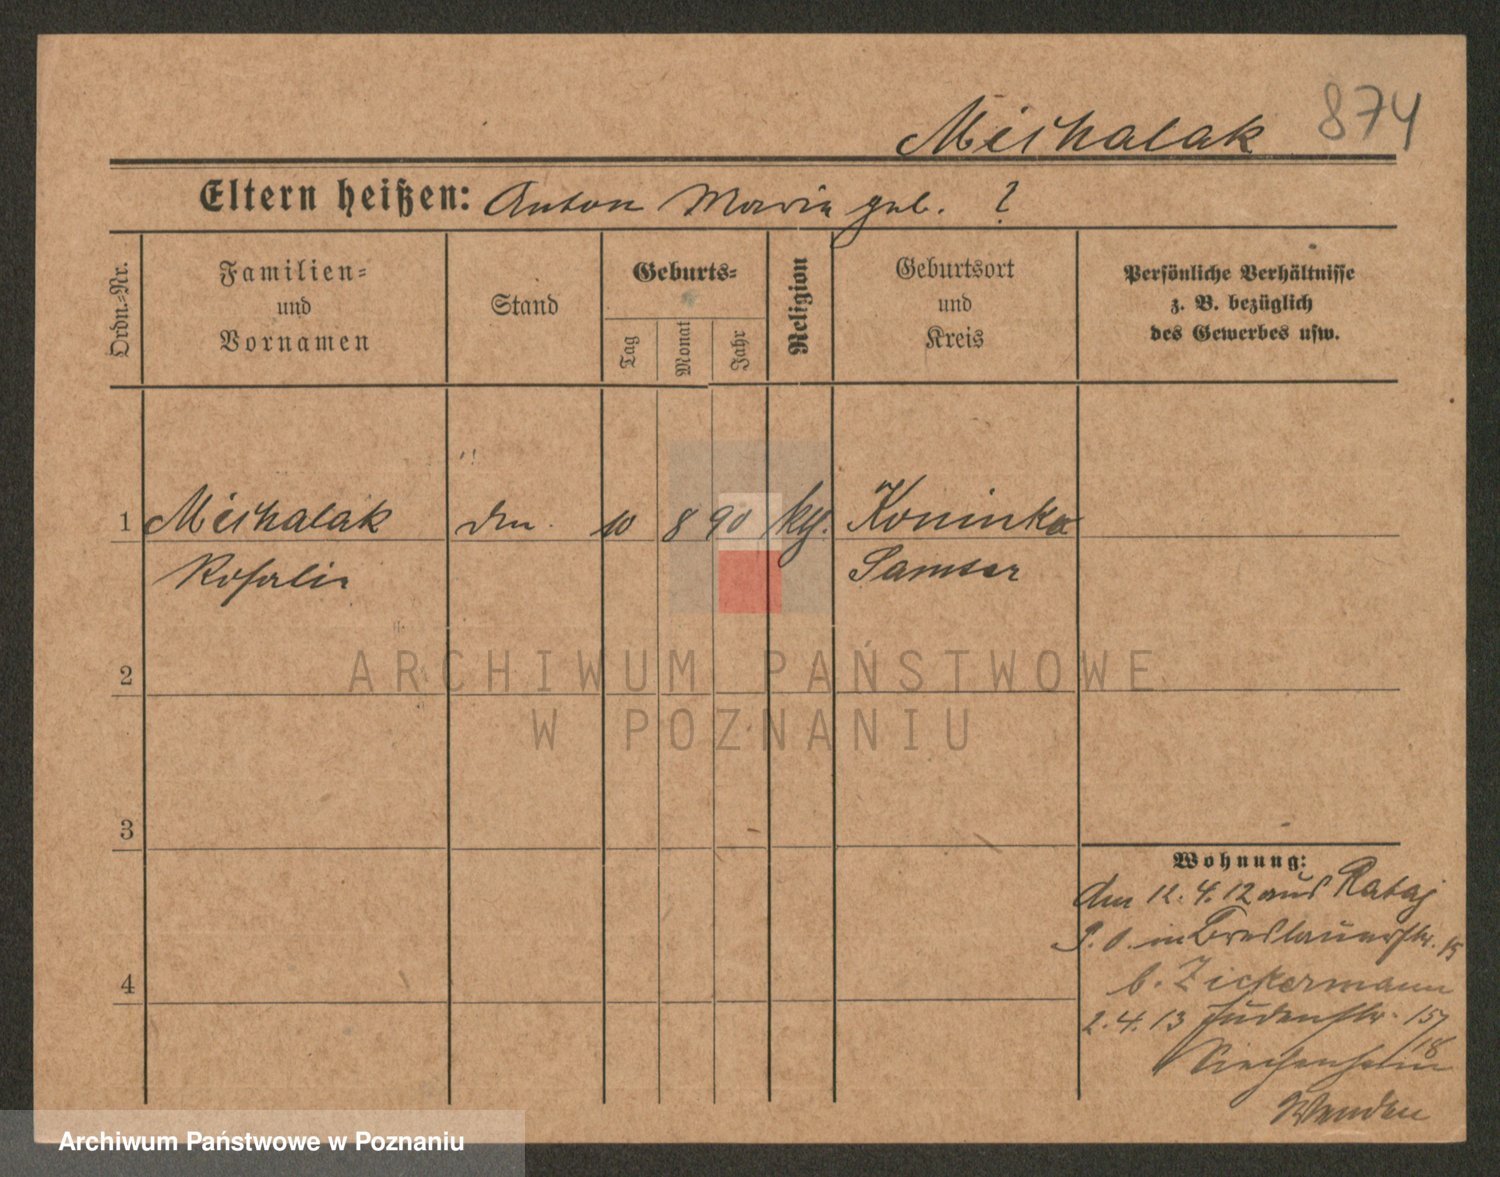 Michalak 874
Eltern heißen: Anton Marie geb. ?
Ordn.-Nr.
Familien-
und
Vornamen
Stand
Geburts-
Tag
Monat
Jahr
Religion
Geburtsort
und
Kreis
Persönliche Verhältnisse
z. B. bezüglich
des Gewerbes usw.
1 Michalak 10 8 90 Koninko
Rosalie Samter
2
3
4
Wohnung:
den 12. 4. 12 aus Rataj
P. O. in Breslauerstr. 15
b. Zickermann
2. 4. 13 Judenstr. 157
18
Wenden
ARCHIWUM PAŃSTWOWE
W POZNANIU
Archiwum Państwowe w Poznaniu